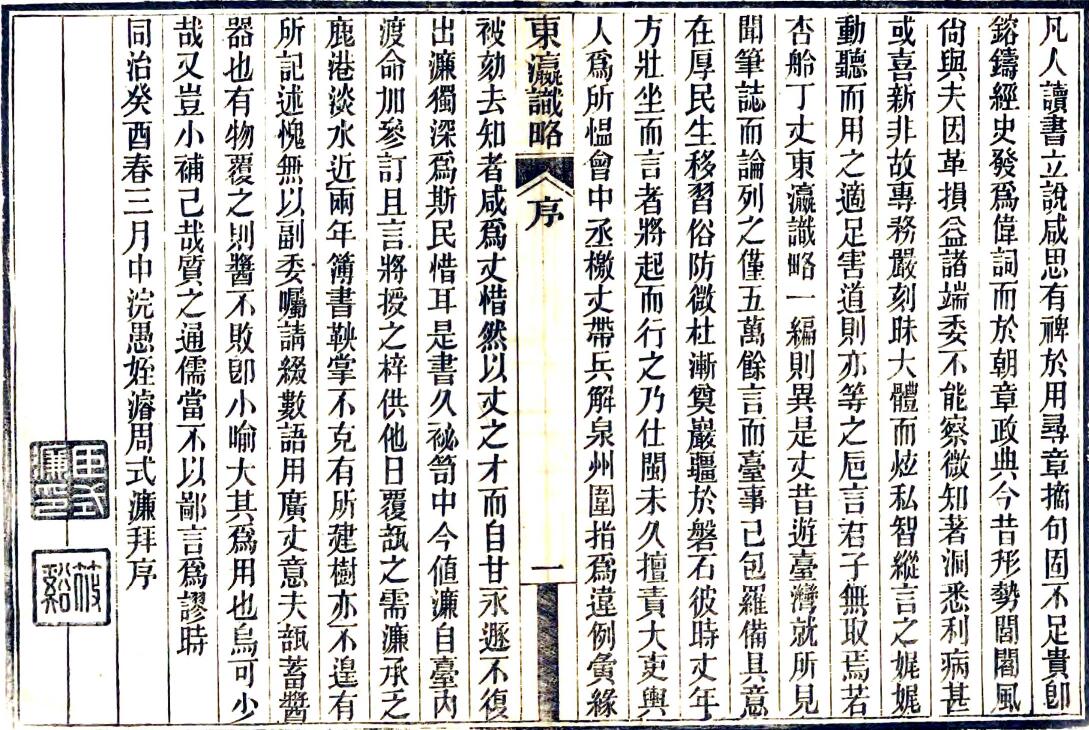 凡人讀書立說咸思有裨於用尋章摘句固不足貴卽
鎔鑄經史發爲偉詞而於朝章政典今昔形勢閭閻風
尙與夫因革損益諸端委不能察微知著洞悉利病甚
或喜新非故專務嚴刻昧大體而炫私智縱言之娓娓
動聽而用之適足害道則亦等之卮言君子無取焉若
杏舲丁丈東瀛識略一編則異是丈昔遊臺灣就所見
聞筆誌而論列之僅五萬餘言而臺事已包羅備具意
在厚民生移習俗防微杜漸奠巖疆於磐石彼時丈年
方壯坐而言者將起而行之乃仕閩未久擅責大吏輿
人爲所愠曾中丞檄丈帶兵解泉州圍指爲違例夤緣
東瀛識略
序
一
被劾去知者咸爲丈惜然以丈之才而自甘永遯不復
出濂獨深爲斯民惜耳是書久祕笥中今值濂自臺內
渡命加參訂且言將授之梓供他日覆瓿之需濂承乏
鹿港淡水近兩年簿書鞅掌不克有所建樹亦不遑有
所記述愧無以副委囑請綴數語用廣丈意夫瓿蓄醬
器也有物覆之則醬不敗卽小喻大其爲用也烏可少
哉又豈小補已哉質之通儒當不以鄙言爲謬時
同治癸酉春三月中浣愚姪濬周式濂拜序
周式
濂印
筱
谿